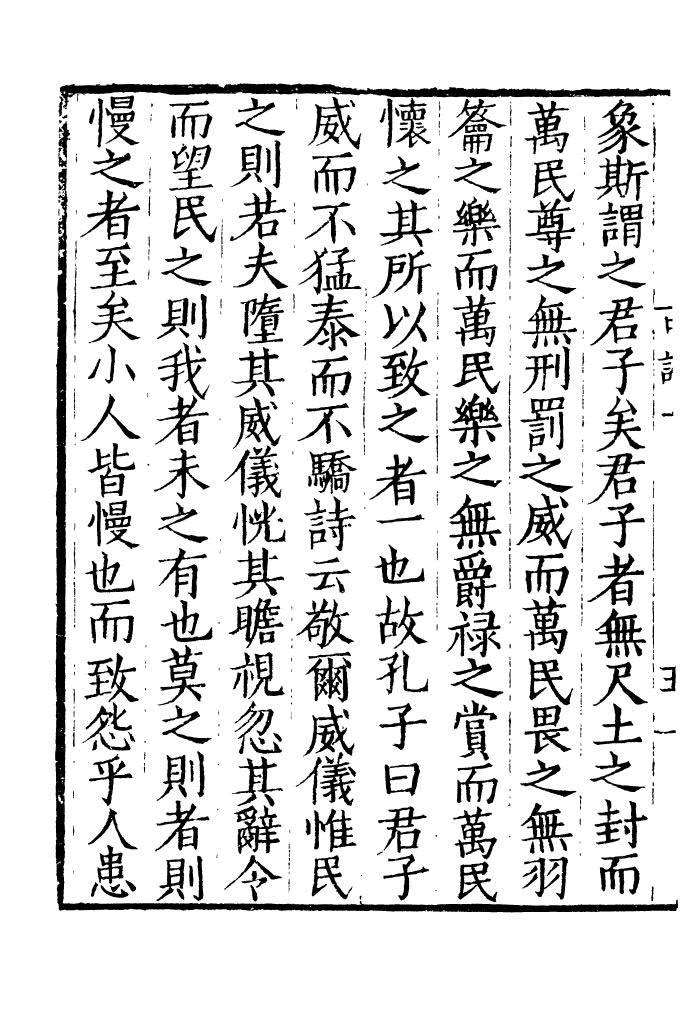 象斯謂之君子矣君子者無尺土之封而
萬民尊之無刑罰之威而萬民畏之無羽
籥之樂而萬民樂之無爵禄之賞而萬民
懷之其所以致之者一也故孔子曰君子
威而不猛泰而不驕詩云敬爾威儀惟民
之則若夫墮其威儀恍其瞻視忽其辭令
而望民之則我者未之有也莫之則者則
慢之者至矣小人皆慢也而致怨乎人患